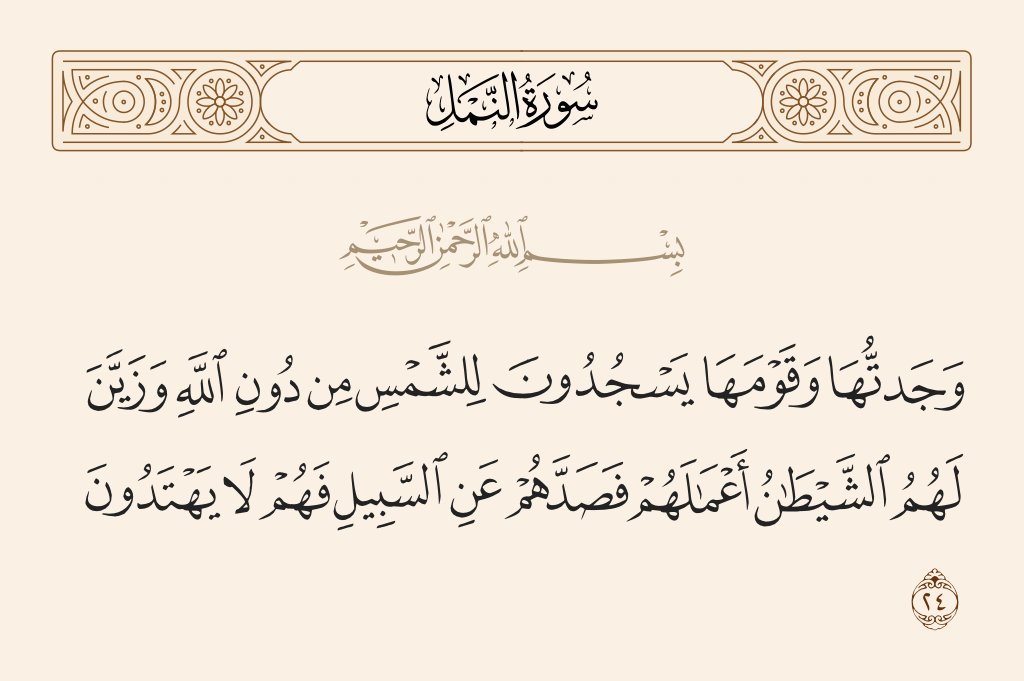 سُورَةُ النَّمْلِ
بِسْمِ ٱللَّهِ ٱلرَّحْمَٰنِ ٱلرَّحِيمِ
وَجَدتُّهَا وَقَوْمَهَا يَسْجُدُونَ لِلشَّمْسِ مِن دُونِ ٱللَّهِ وَزَيَّنَ
لَهُمُ ٱلشَّيْطَٰنُ أَعْمَٰلَهُمْ فَصَدَّهُمْ عَنِ ٱلسَّبِيلِ فَهُمْ لَا يَهْتَدُونَ
٢٤